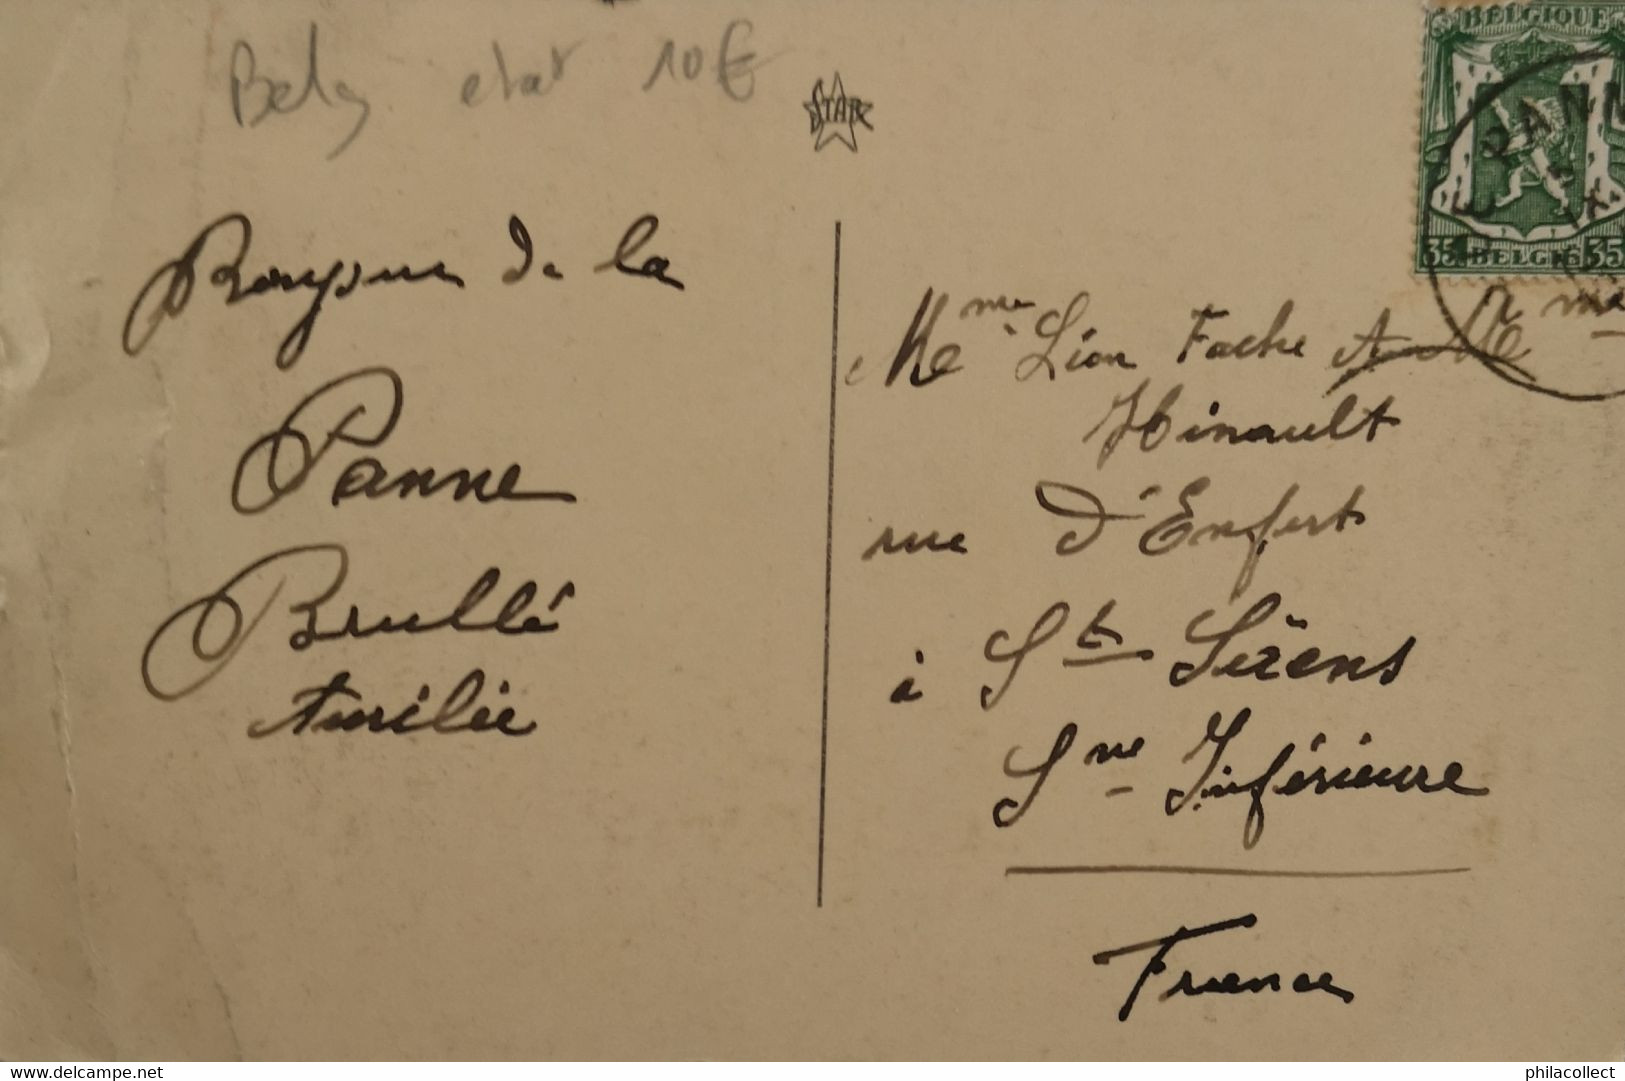 Belg etat 10€
STAR
BELGIQUE
PANN
35 BELGIË 35
Bonjour de la
Panne
Brullé
Aurélie
Mme Léon Fache A Mme
Hinault
rue d'Enfert
à St Siëens
Sne Inférieure
France
delcampe.net
philacollect